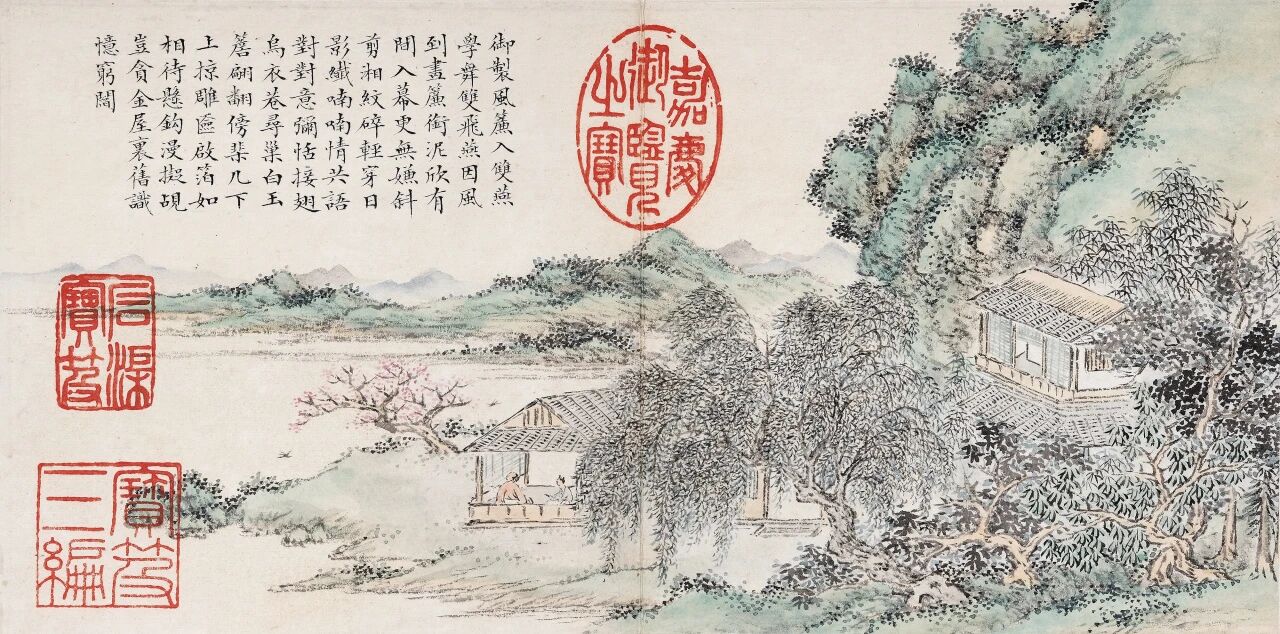 御製風簾入雙燕
學舞雙飛燕因風
到畫簾銜泥欣有
間入幕更無嫌斜
剪湘紋碎輕穿日
影纖喃喃情共語
對對意彌恬接翅
烏衣巷尋巢白玉
簷翩翻傍棐几下
上掠雕匳啟箔如
相待懸鈎漫擬覘
豈貪金屋裏舊識
憶窮閻
嘉慶
御覽
之寶
石渠
寶笈
寶笈
三編